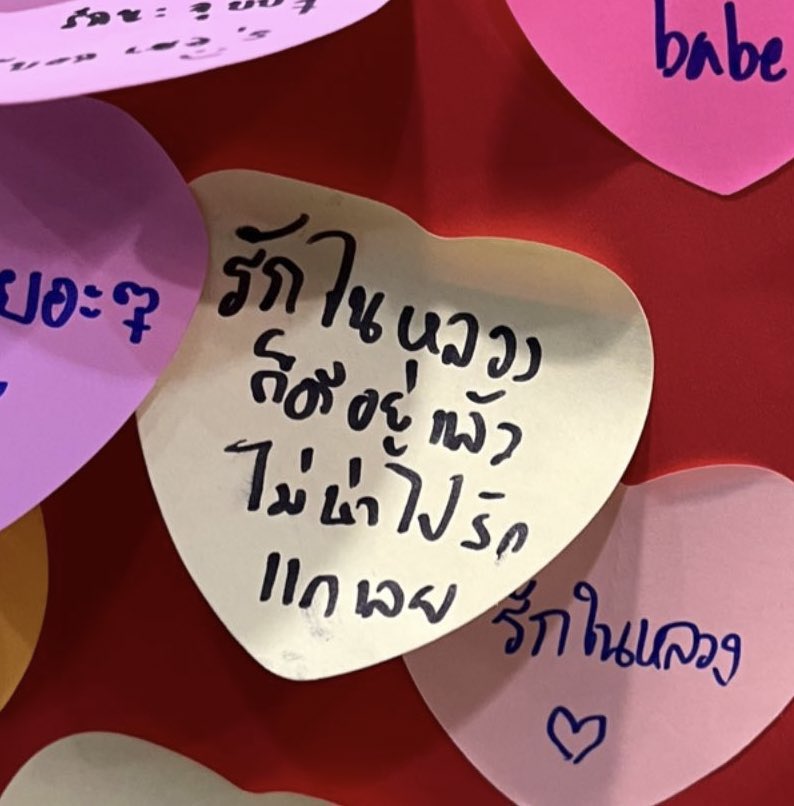 babe
ยอะๆ
รักในหลวง
ก็ดีอยู่แล้ว
ไม่น่าไปรัก
แกเลย
รักในหลวง